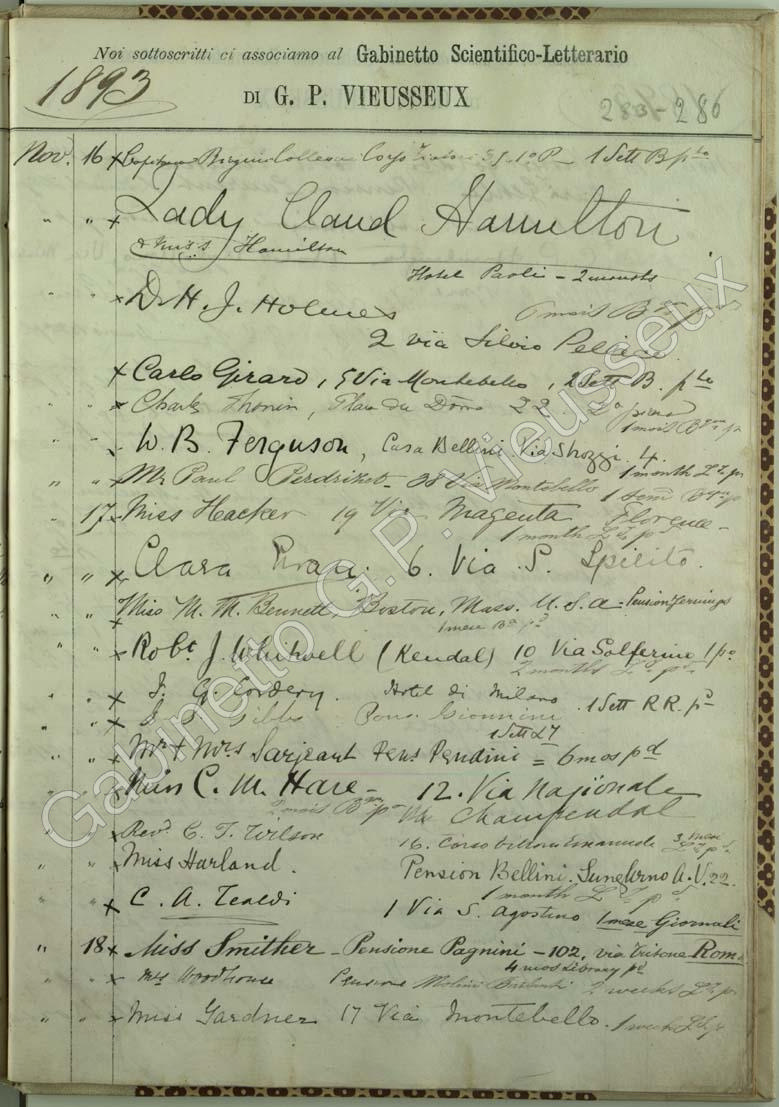 Noi sottoscritti ci associamo al Gabinetto Scientifico-Letterario
DI G. P. VIEUSSEUX
1893
283-286
Nov. 16 x 1 Sett B pto
" " x Lady Claud Hamilton
& Miss Hamilton
Hotel Paoli - 2 months
" x Dr H. J. Holmes 6 mois
2 via Silvio Pellico
x Carlo Girard, 5 Via Montebello, 2 Sett B. pto
" x Charles Thonin, Place du Dôme 22. 2o piano
1 mois
" x W. B. Ferguson, Casa Bellini Via Strozzi 4.
1 month
" " x Mr Paul Perdrizet 38 Via Montebello 1 Sem
" 17 x Miss Hacker 19 Via Magenta Florence
1 month
" " x Clara 6. Via S. Spirito.
" " x Miss M. M. Bennett, Boston, Mass. U.S.A. Pension Jennings
1 mese
" " x Robt J. Whitwell (Kendal) 10 Via Solferino 1 po
2 months
" x J. G. Cordery. Hotel di Milano. 1 Sett R.R. pd
" " x Gibbs Pens. Giannini
1 Sett L7
" " x Mr & Mrs Sarjeant Pens Pendini = 6 mos pd
" x Miss C. M. Hare - 12. Via Nazionale
Champendal
" " x Revd C. T. Wilson 16. Corso Vittorio Emanuele 3 mesi
" " Miss Harland. Pension Bellini. Lungarno A.V. 22.
1 month
" " x C. A. Tealdi 1 Via S. Agostino 1 mese Giornali
" 18 x Miss Smither - Pensione Pagnini - 102, via Tritone Roma
4 mos Library pd
" " x Mrs Woodhouse Pensione 2 weeks
" " x Miss Gardner 17 Via Montebello. 1 week
Gabinetto G.P. Vieusseux